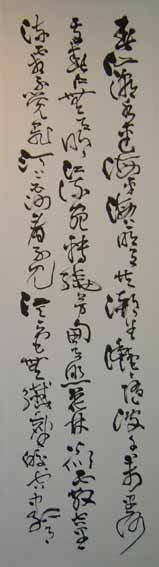 春江潮水連海平海上明月共潮生灧灧隨波千万里何
處春江無月明江流宛轉繞芳甸月照花林皆似霰空里
流霜不覺飛汀上白沙看不見江天一色無纖塵皎皎空中孤月